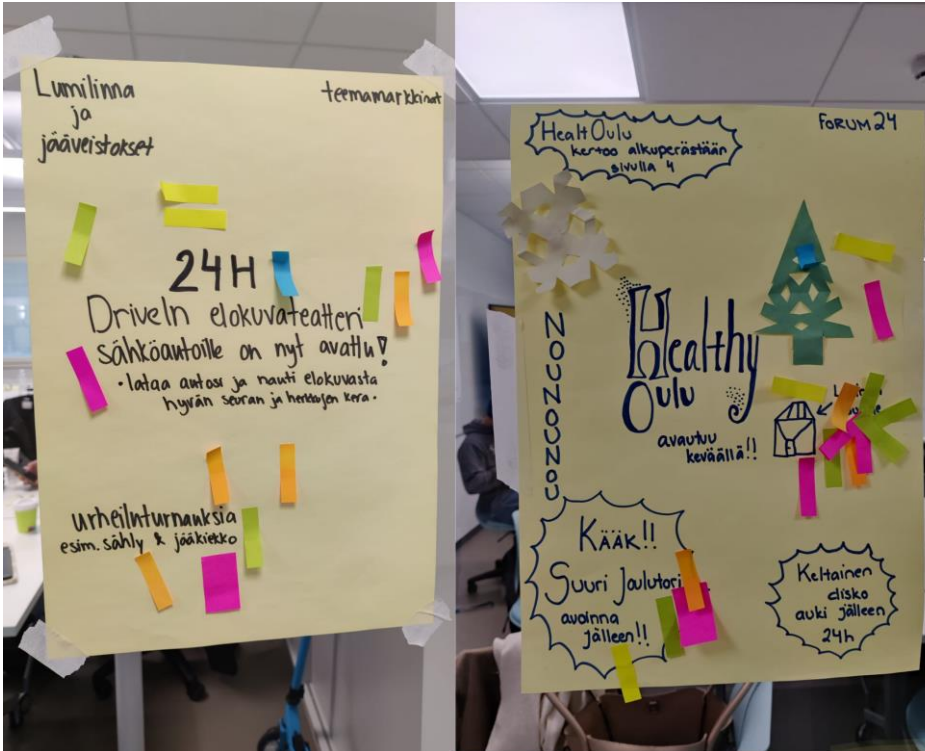 Lumilinna
ja
jääveistokset
teemamarkkinat
24H
DriveIn elokuvateatteri
sähköautoille on nyt avattu!
• lataa autosi ja nauti elokuvasta
hyvän seuran ja herkkujen kera.
urheiluturnauksia
esim. sähly & jääkiekko
HealtOulu
kertoo alkuperästään
sivulla 4
FORUM24
NOUNOUNOU
Healthy
Oulu
avautuu
keväällä!!
KÄÄK!!
Suuri Joulutori
avoinna
jälleen!!
Keltainen
disko
auki jälleen
24h